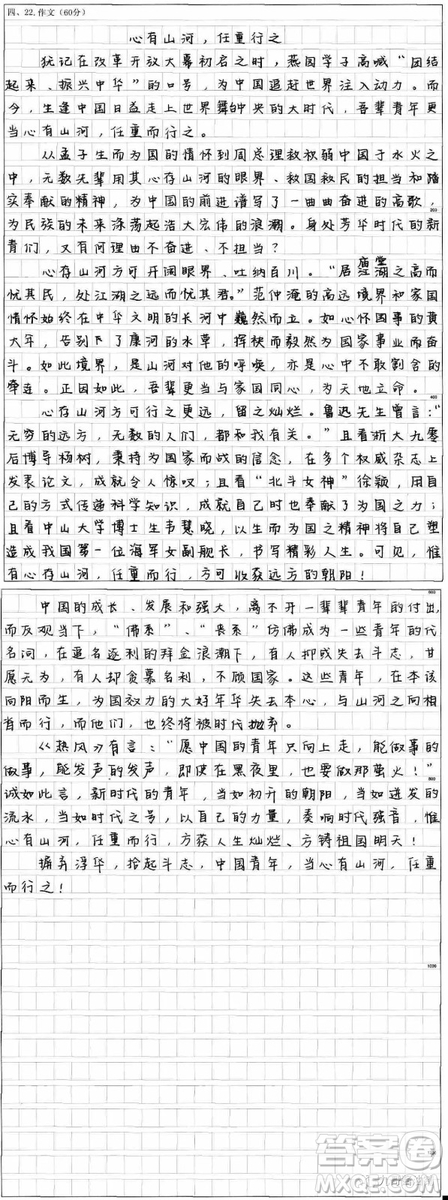 四、22.作文(60分)
心有山河，任重行之
犹记在改革开放大幕初启之时，燕园学子高喊“团结
起来、振兴中华”的口号，为中国追赶世界注入动力。而
今，生逢中国日益走上世界舞台中央的大时代，吾辈青年更
当心有山河，任重而行之。
从孟子生而为国的情怀到周总理救积弱中国于水火之
中，无数先辈用其心存山河的眼界、救国救民的担当和踏
实奉献的精神，为中国的前进谱写了一曲曲奋进的高歌，
为民族的未来涤荡起浩大宏伟的浪潮。身处芳华时代的新
青们，又有何理由不奋进、不担当？
心存山河方可开阔眼界、吐纳百川。“居庙堂之高而
忧其民，处江湖之远而忧其君。”范仲淹的高远境界和家国
情怀始终在中华文明的长河中巍然而立。如心怀国事的黄
大年，告别下了康河的水草，挥袂而毅然为国家事业而奋
斗。如此境界，是山河对他的呼唤，亦是心中不敢割舍的
牵连。正因如此，吾辈更当与家国同心，为天地立命。
心存山河方可行之更远，留之灿烂。鲁迅先生曾言：“
无穷的远方，无数的人们，都和我有关。”且看浙大九零
后博导杨树，秉持为国家而战的信念，在多个权威杂志上
发表论文，成就令人惊叹；且看“北斗女神”徐颖，用自
己的方式传递科学知识，成就自己时也奉献了为国之力；
且看中山大学博士生韦慧晓，以生而为国之精神将自己塑
造成我国第一位海军女副舰长，书写精彩人生。可见，惟
有心存山河，任重而行，方可收获远方的朝阳！
中国的成长、发展和强大，离不开一辈辈青年的付出，
而反观当下，“佛系”、“丧系”仿佛成为一些青年的代
名词，在追名逐利的拜金浪潮下，有人抑或失去斗志，甘
愿无为，有人抑贪慕名利，不顾国家。这些青年，在本该
向阳而生，为国效力的大好年华失去本心，与山河之向相
背而行，而他们，也终将被时代抛弃。
《热风》有言：“愿中国的青年只向上走，能做事的
做事，能发声的发声，即使在黑夜里，也要做那萤火！”
诚如此言，新时代的青年，当如初升的朝阳，当如迸发的
流水，当如时代之号，以自己的力量，奏响时代强音，惟
心有山河，任重而行，方获人生灿烂、方铸祖国明天！
摒弃浮华，拾起斗志，中国青年，当心有山河，任重
而行之！
答案圈